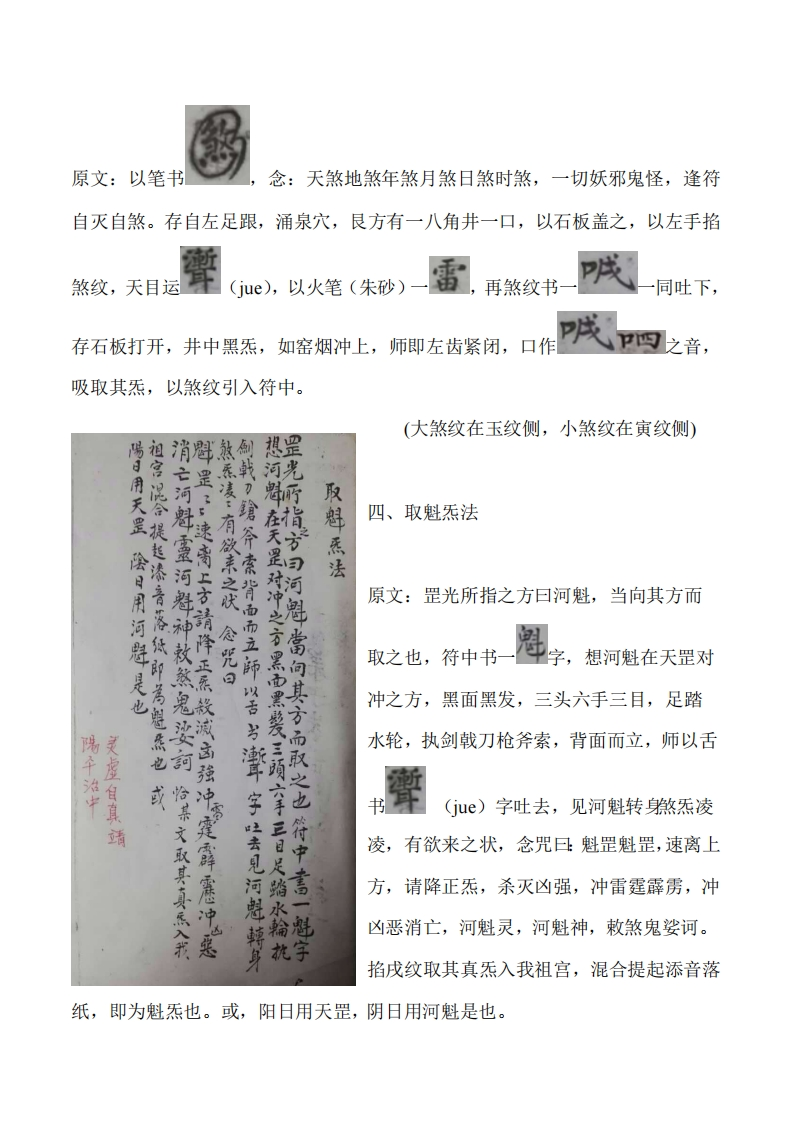 原文：以笔书煞，念：天煞地煞年煞月煞日煞时煞，一切妖邪鬼怪，逢符
自灭自煞。存自左足跟，涌泉穴，艮方有一八角井一口，以石板盖之，以左手掐
煞纹，天目运（jue），以火笔（朱砂）一雷，再煞纹书一喊一同吐下，
存石板打开，井中黑炁，如窑烟冲上，师即左齿紧闭，口作喊呬之音，
吸取其炁，以煞纹引入符中。
(大煞纹在玉纹侧，小煞纹在寅纹侧)
取魁炁法
罡光所指之方曰河魁當向其方而取之也符中書一魁字
想河魁在天罡对冲之方黑面黑髮三頭六手三目足踏水輪执
劍戟刀鎗斧索背面而立師以舌书字吐去見河魁轉身
煞炁凌凌有欲来之状 念咒曰
魁罡魁罡速离上方請降正炁殺滅凶強冲雷霆霹靂冲凶惡
消亡河魁靈河魁神敕煞鬼娑訶 掐某文取其真炁入我
祖宫混合提起添音落纸即為魁炁也 或
陽日用天罡 陰日用河魁是也
灵虚自真靖
陽平治中
四、取魁炁法
原文：罡光所指之方曰河魁，当向其方而
取之也，符中书一魁字，想河魁在天罡对
冲之方，黑面黑发，三头六手三目，足踏
水轮，执剑戟刀枪斧索，背面而立，师以舌
书（jue）字吐去，见河魁转身煞炁凌
凌，有欲来之状，念咒曰：魁罡魁罡，速离上
方，请降正炁，杀灭凶强，冲雷霆霹雳，冲
凶恶消亡，河魁灵，河魁神，敕煞鬼娑诃。
掐戌纹取其真炁入我祖宫，混合提起添音落
纸，即为魁炁也。或，阳日用天罡，阴日用河魁是也。